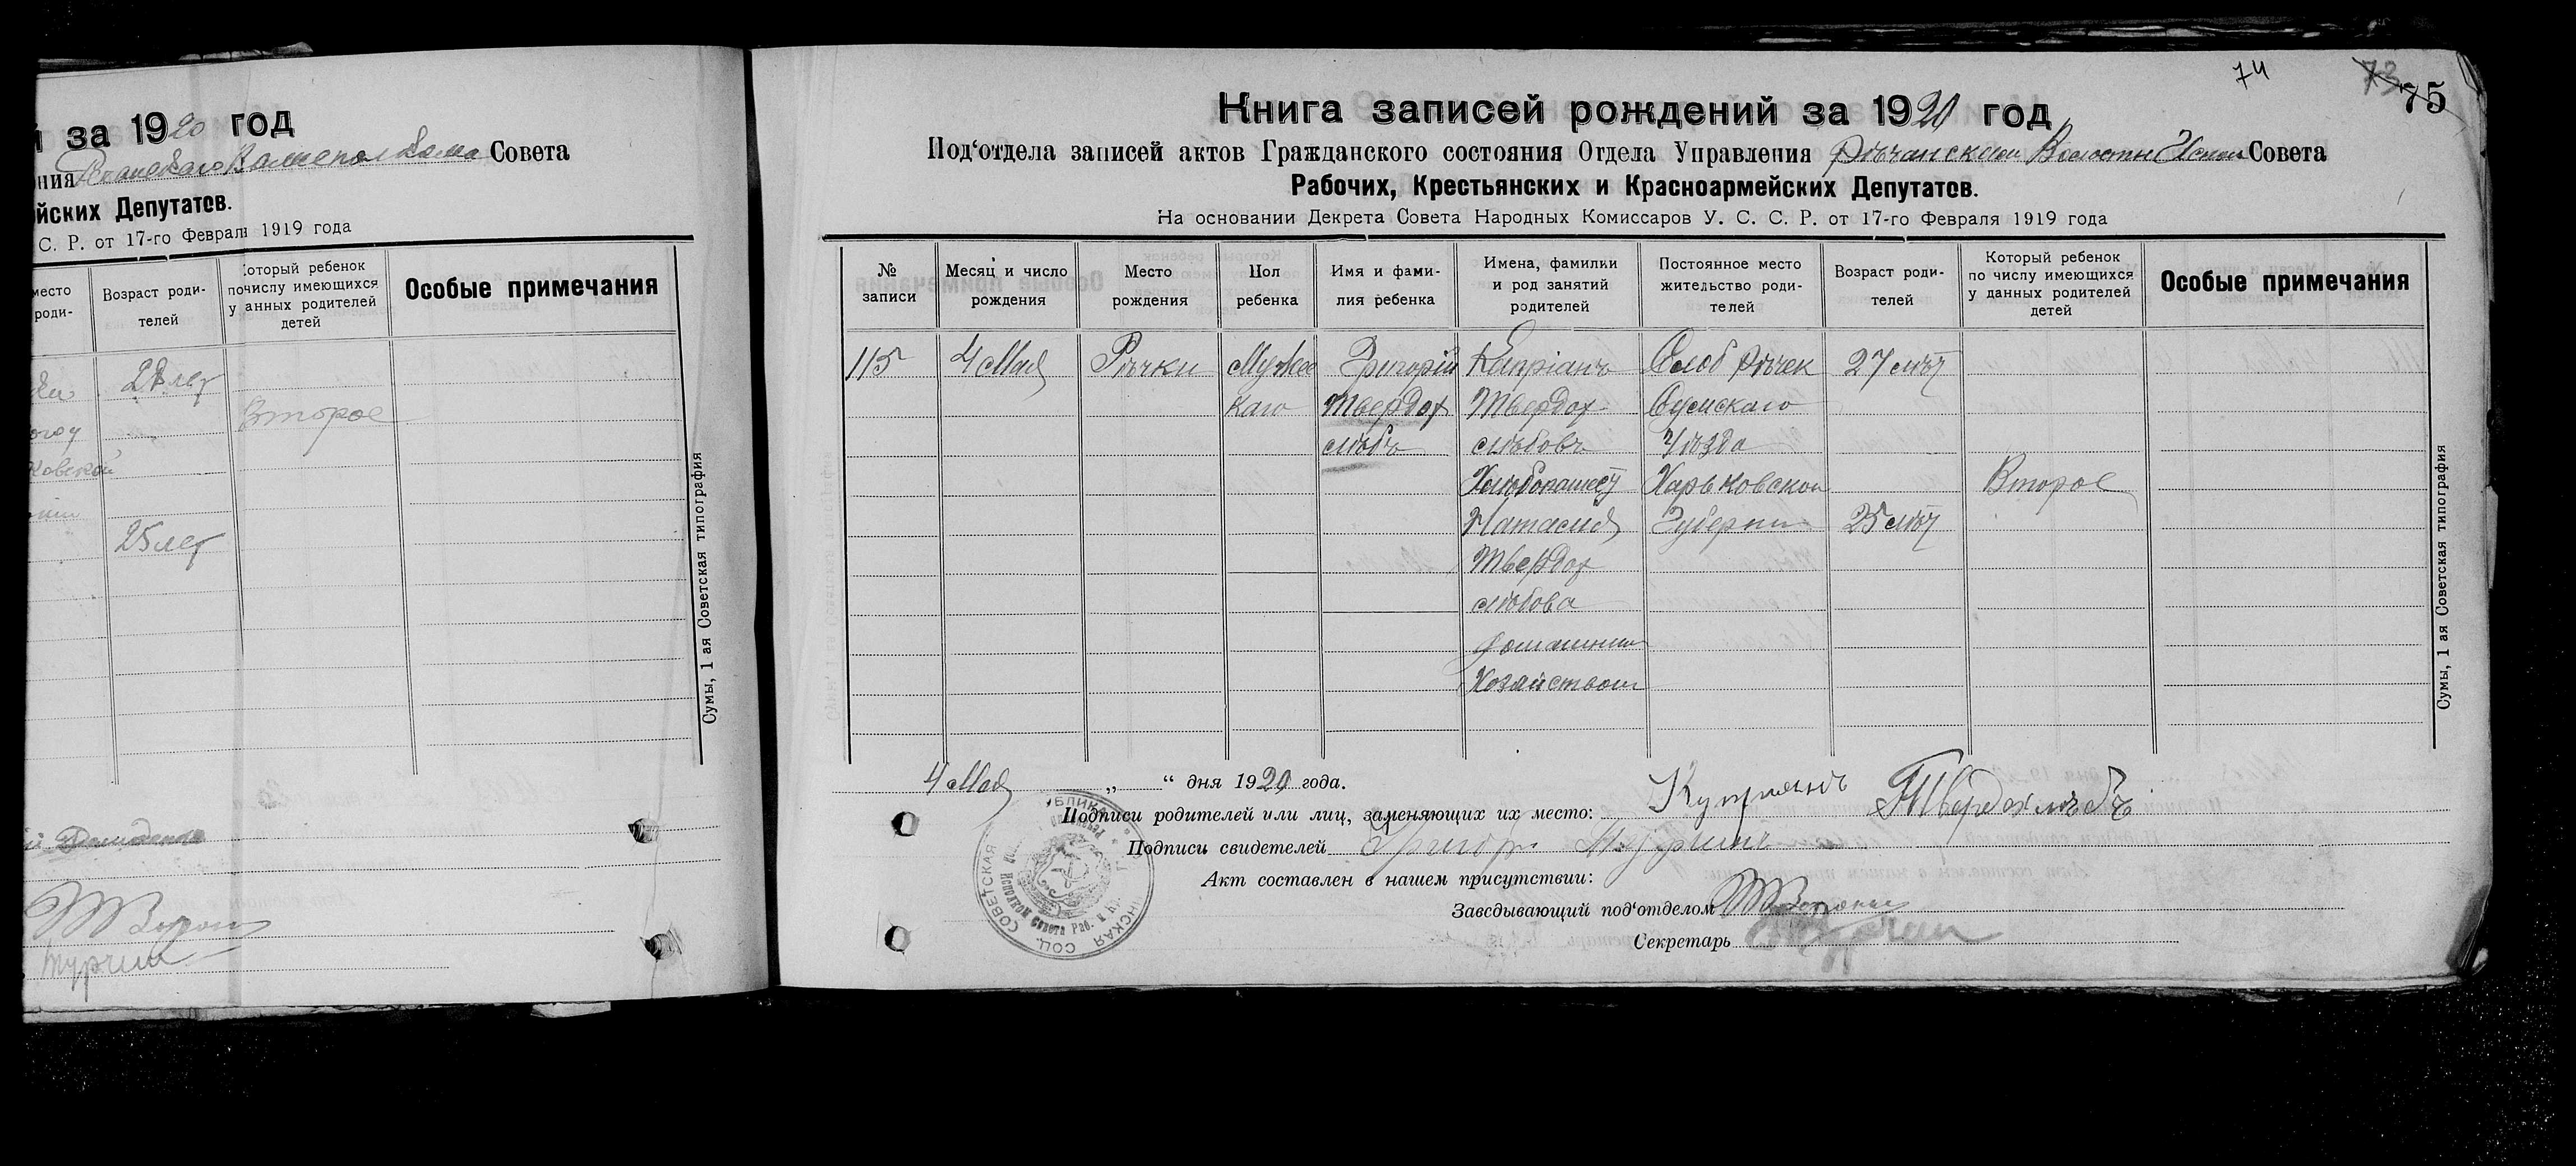 за 1920 год
Совета
йских Депутатов.
С. Р. от 17-го Февраля 1919 года
место
роди-
Возраст роди-
телей
оторый ребенок
по числу имеющихся
у анных родителей
детей
Особые примечания
28 лет
Второе
25 лет
Сумы, 1 ая Советская типография
74
73
75
Книга записей рождений за 1920 год
Под‘отдела записей актов Гражданского состояния Отдела Управления Рѣчанской Волостн Испол Совета
Рабочих, Крестьянских и Красноармейских Депутатов.
На основании Декрета Совета Народных Комиссаров У. С. С. Р. от 17-го Февраля 1919 года
№
записи
Месяц и число
рождения
Место
рождения
Пол
ребенка
Имя и фами-
лия ребенка
Имена, фамилки
и род занятий
родителей
Постоянное место
жительство роди-
телей
Возраст роди-
телей
Который ребенок
по числу имеющихся
у данных родителей
детей
Особые примечания
115 4 Мая Рѣчки Мужс Григорій Кипріанъ Слоб Рѣчек 27 лѣт
каго Твердох Твердох Сумскаго
лѣбъ лѣбовъ Уѣзда
Хлѣбопашест Харьковской Второе
Наталия Губернии 25 лѣт
Твердох
лѣбова
Домашним
Хозяйством
4 Мая „ “ дня 1920 года.
Подписи родителей или лиц, заменяющих их место: Куприянъ Твердохлѣбъ
Подписи свидетелей Григори
Акт составлен в нашем присутствии:
Заведывающий под‘отделом
Секретарь
Сумы, 1 ая Советская типография